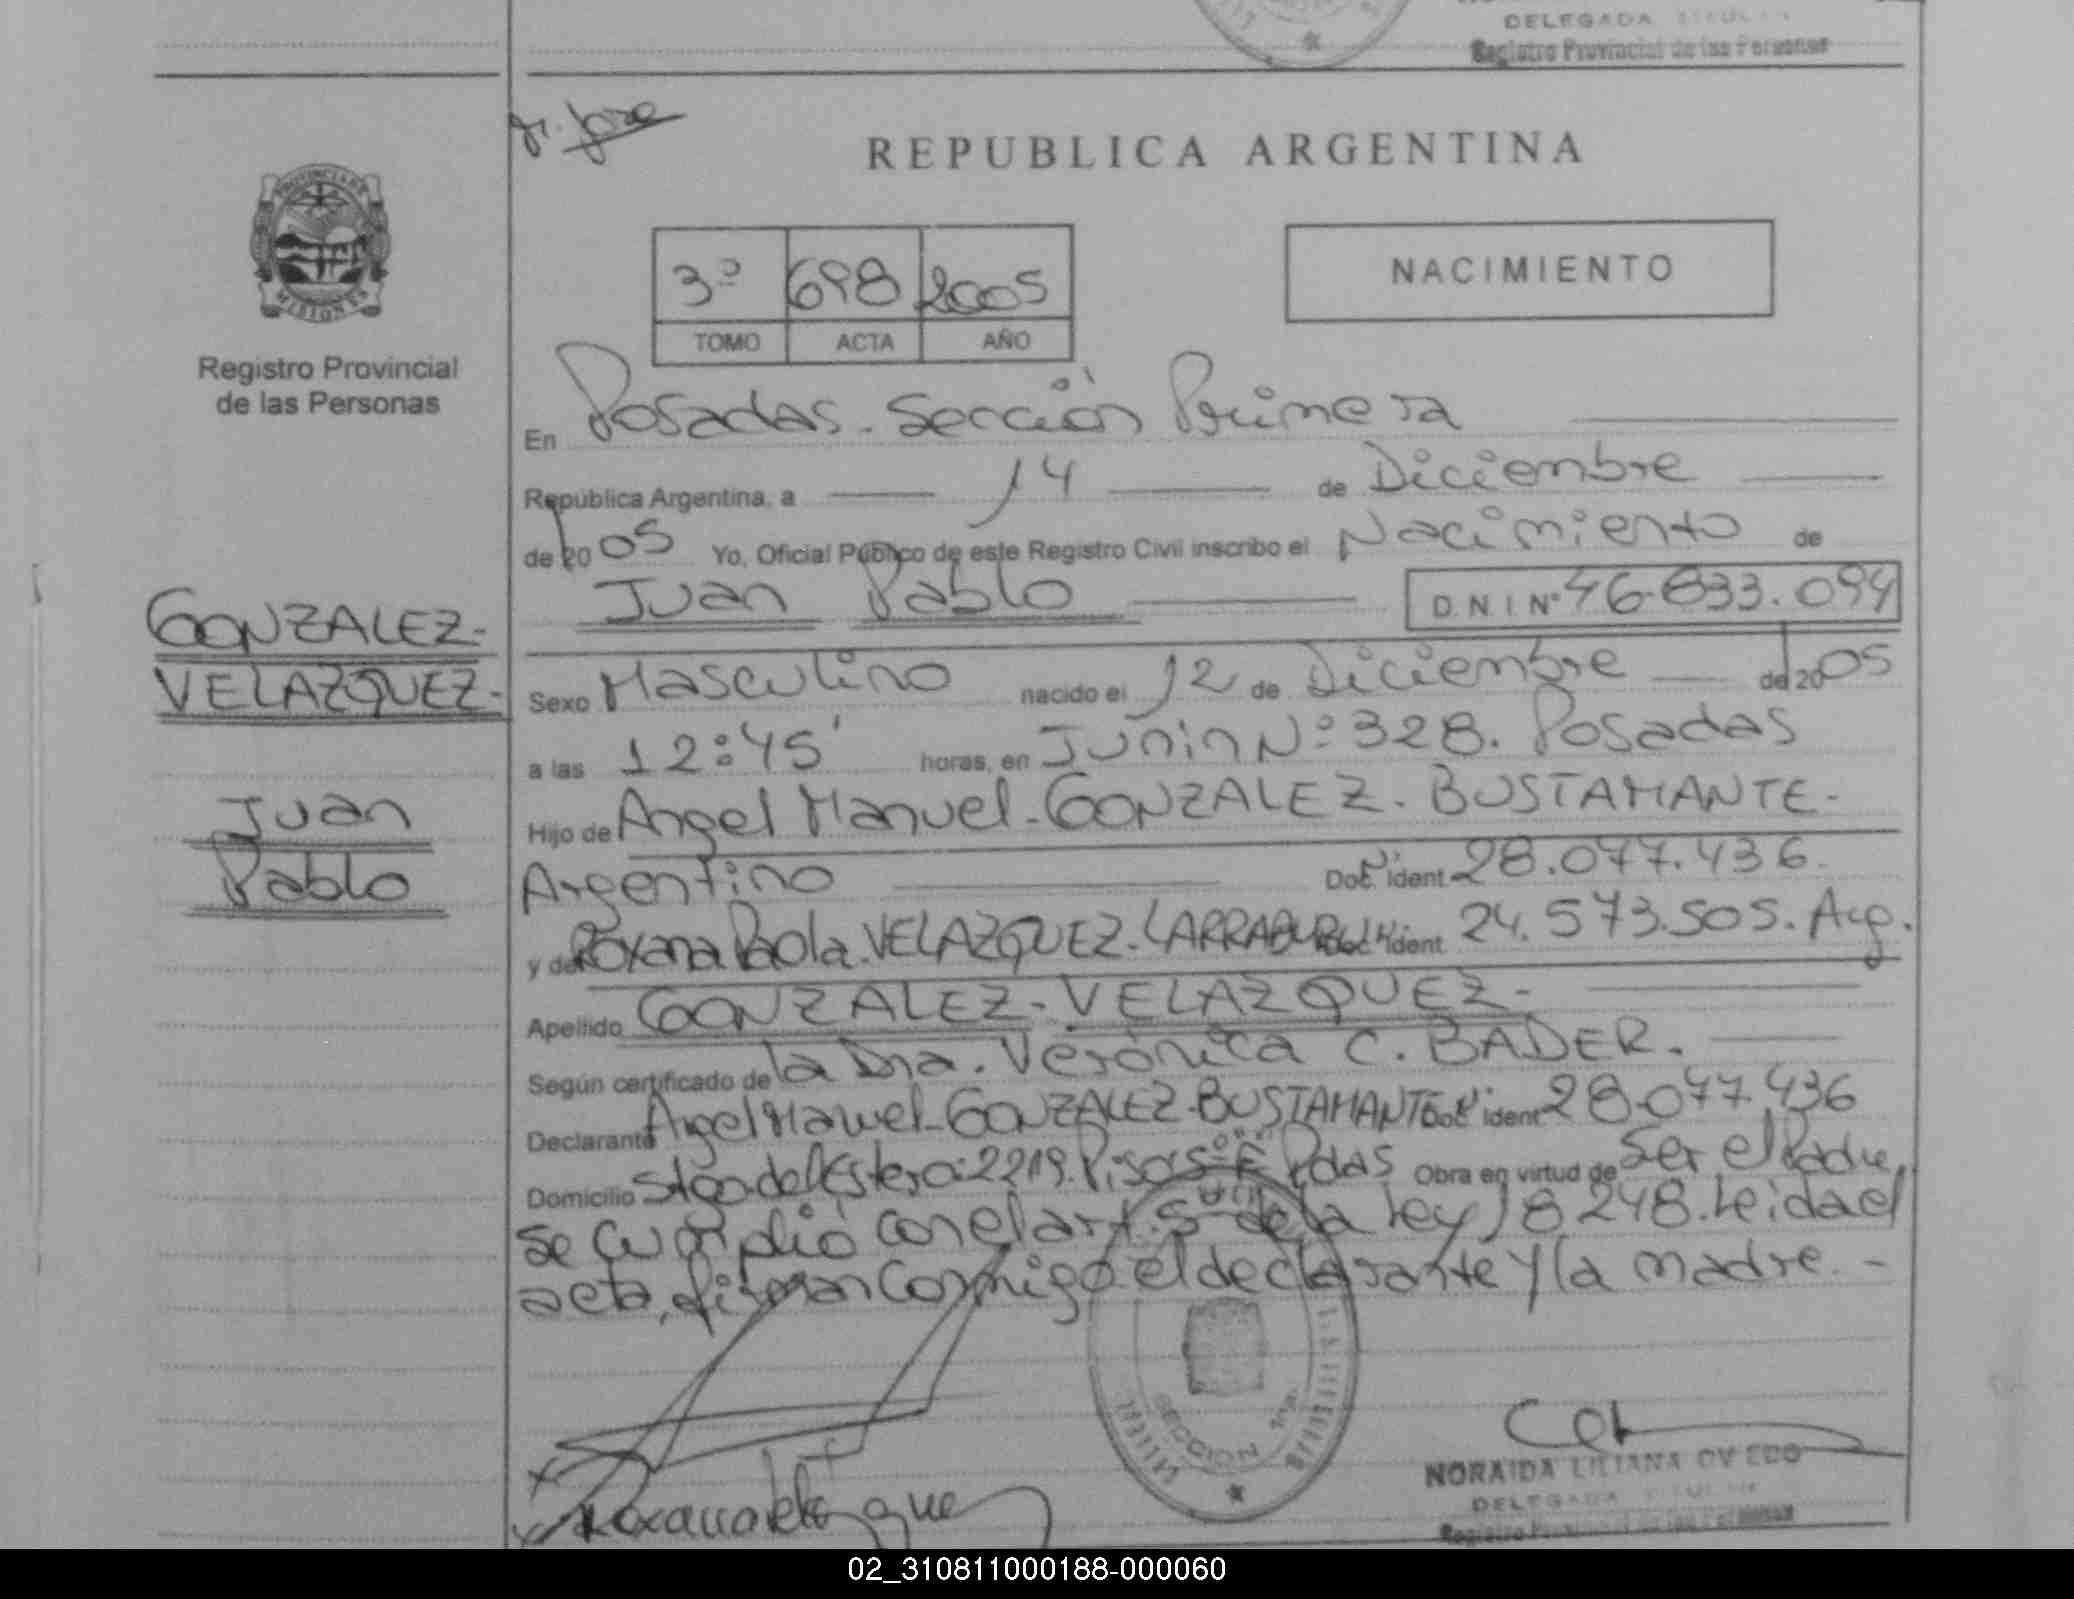 DELEGADA TITULAR
Registro Provincial de las Personas
REPUBLICA ARGENTINA
PROVINCIA DE
MISIONES
Registro Provincial
de las Personas
3º 698 2005
TOMO ACTA AÑO
NACIMIENTO
En Posadas. Sección Primera
República Argentina, a 14 de Diciembre
de 2005 Yo, Oficial Público de este Registro Civil inscribo el Nacimiento de
Juan Pablo D.N.I Nº 46.833.094
GONZALEZ-
VELAZQUEZ-
Juan
Pablo
Sexo Masculino nacido el 12 de Diciembre de 2005
a las 12:45' horas, en Junin Nº 328. Posadas
Hijo de Angel Manuel-GONZALEZ. BUSTAMANTE-
Argentino Doc ident 28.077.436.
y de Roxana Paola. VELAZQUEZ. Doc ident 24.573.505. Arg.
Apellido GONZALEZ-VELAZQUEZ-
Según certificado de la Dra. Verónica C. BADER.
Declarante Angel Manuel-GONZALEZ-BUSTAMANTE Doc ident 28.077.436
Domicilio Stgo. del Estero: 2219. Pdas Obra en virtud de Ser el Padre.
Se cumplió con el art. 5º de la Ley 18248. Leida el
acta, firman conmigo el declarante y la madre.-
SECCION 1ra.
Roxana Velazquez
NORAIDA LILIANA OVIEDO
DELEGADA TITULAR
Registro Provincial de las Personas
02_310811000188-000060